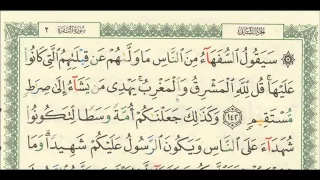 الجزء الثاني سورة البقرة ٢
سَيَقُولُ السُّفَهَآءُ مِنَ النَّاسِ مَا وَلَّىٰهُمْ عَن قِبْلَتِهِمُ الَّتِى كَانُوا۟
عَلَيْهَا ۚ قُل لِّلَّهِ الْمَشْرِقُ وَالْمَغْرِبُ ۚ يَهْدِى مَن يَشَآءُ إِلَىٰ صِرَٰطٍ
مُّسْتَقِيمٍ ١٤٢ وَكَذَٰلِكَ جَعَلْنَٰكُمْ أُمَّةً وَسَطًا لِّتَكُونُوا۟
شُهَدَآءَ عَلَى النَّاسِ وَيَكُونَ الرَّسُولُ عَلَيْكُمْ شَهِيدًا ۗ وَمَا